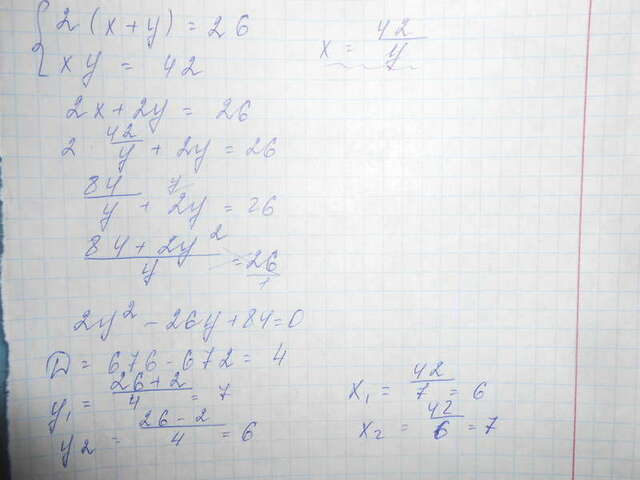 { 2(x+y) = 26
xy = 42
x = 42/y
2x + 2y = 26
2 · 42/y + 2y = 26
84/y + 2y = 26
(84 + 2y²)/y = 26/1
2y² - 26y + 84 = 0
D = 676 - 672 = 4
y₁ = (26 + 2)/4 = 7
y₂ = (26 - 2)/4 = 6
x₁ = 42/7 = 6
x₂ = 42/6 = 7